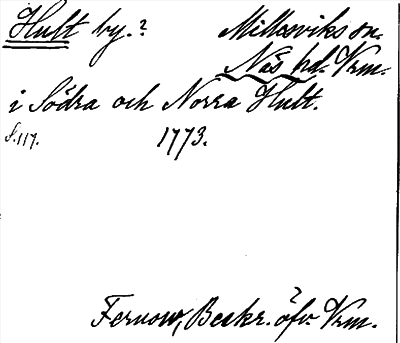 Hult by.? Millesviks sn.
Näs hd. Vrm.
i Södra och Norra Hult.
S. 117. 1773.
Fernow, Beskr. öfv. Vrm.